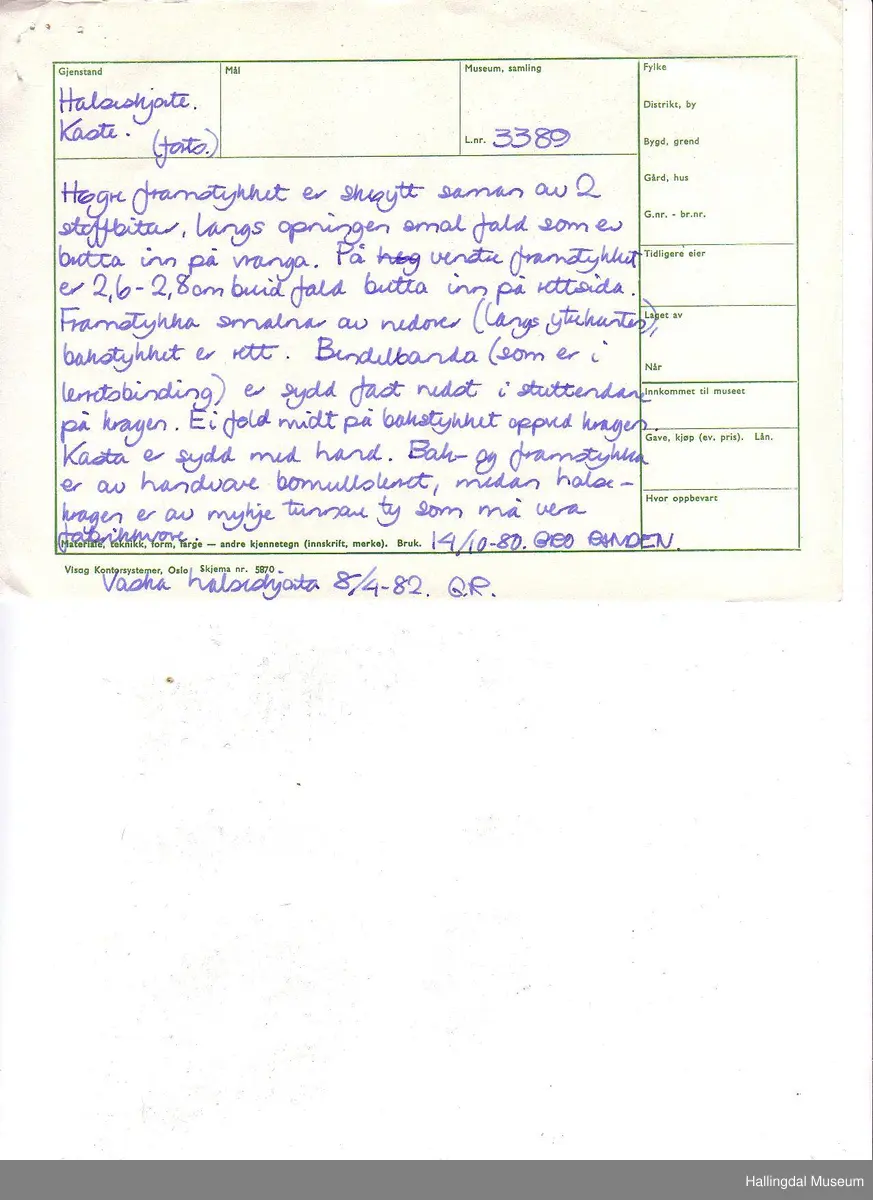 Gjenstand
Mål
Museum, samling
Fylke
Halsskjorte.
Distrikt, by
Kaste.
(forts.)
L.nr. 3389
Bygd, grend
Gård, hus
Høgre framstykket er skøytt saman av 2
G.nr. - br.nr.
stoffbitar, langs opningen smal fald som er
bretta inn på vranga. På venstre framstykket
Tidligere eier
er 2,6 - 2,8 cm breid fald bretta inn på rettsida.
Framstykka smalnar av nedover (langs ytterkanten),
Laget av
bakstykket er rett. Bendelbanda (som er i
Når
lerretsbinding) er sydd fast nedst i stuttendane
Innkommet til museet
på kragen. Ei fold midt på bakstykket oppved kragen.
Gave, kjøp (ev. pris). Lån.
Kasta er sydd med hand. Bak- og framstykka
er av handvove bomullslerret, medan halse-
Hvor oppbevart
kragen er av mykje tunnare ty som må vera
fabrikkvove.
Materiale, teknikk, form, farge — andre kjennetegn (innskrift, merke). Bruk. 14/10-80.
Visag Kontorsystemer, Oslo Skjema nr. 5870
Vaska halsskjorta 8/4-82.
Hallingdal Museum